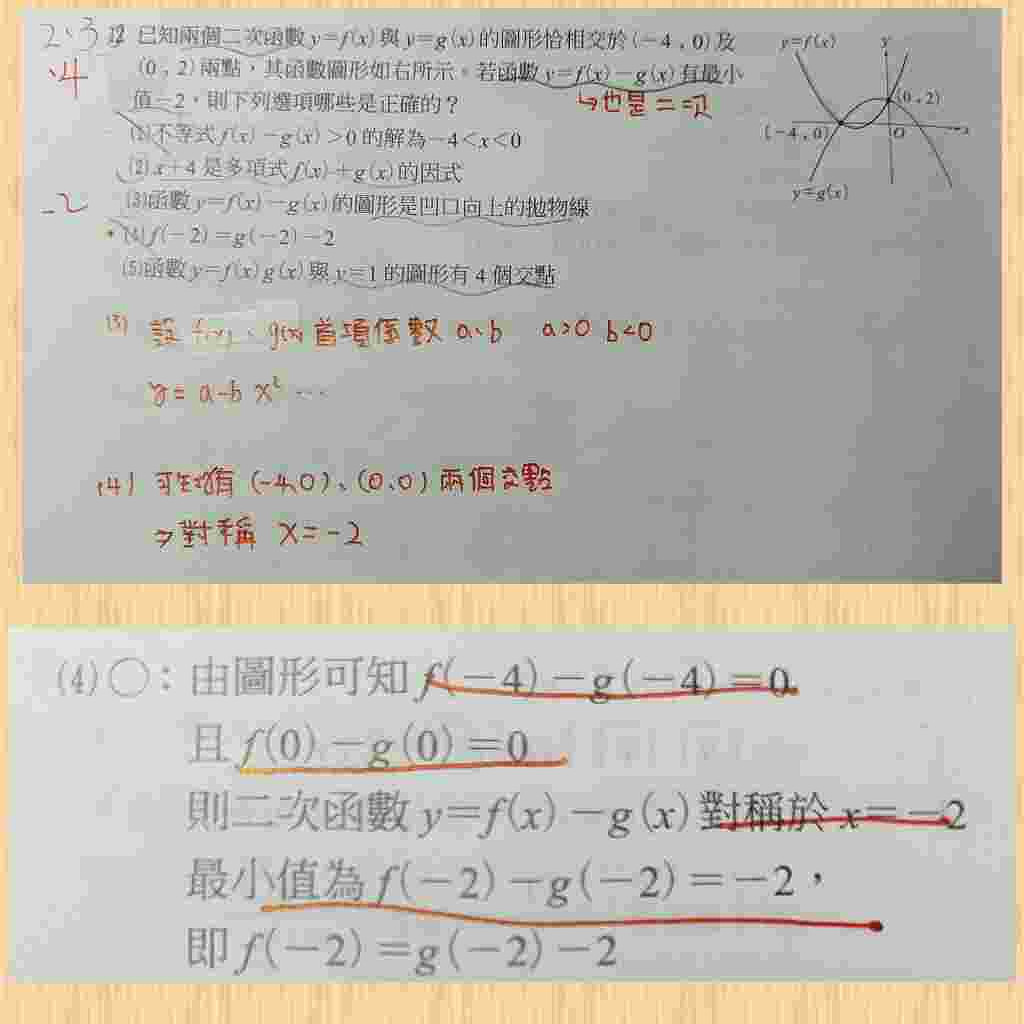 2、3
、4
-2
12 已知兩個二次函數 y=f(x) 與 y=g(x) 的圖形恰相交於 (-4,0) 及
(0,2) 兩點,其函數圖形如右所示。若函數 y=f(x)-g(x) 有最小
值-2,則下列選項哪些是正確的?
↳也是二次
(1)不等式 f(x)-g(x)>0 的解為-4<x<0
(2) x+4 是多項式 f(x)+g(x) 的因式
(3)函數 y=f(x)-g(x) 的圖形是凹口向上的拋物線
(4) f(-2)=g(-2)-2
(5)函數 y=f(x)g(x) 與 y=1 的圖形有 4 個交點
y=f(x)
y
(0,2)
(-4,0)
O
x
y=g(x)
(3) 設 f(x)、g(x) 首項係數 a、b a>0 b<0
y= a-b x² …
(4) 可知有 (-4,0)、(0,0) 兩個交點
⇒對稱 x=-2
(4)○:由圖形可知 f(-4)-g(-4)=0
且 f(0)-g(0)=0
則二次函數 y=f(x)-g(x) 對稱於 x=-2
最小值為 f(-2)-g(-2)=-2,
即 f(-2)=g(-2)-2